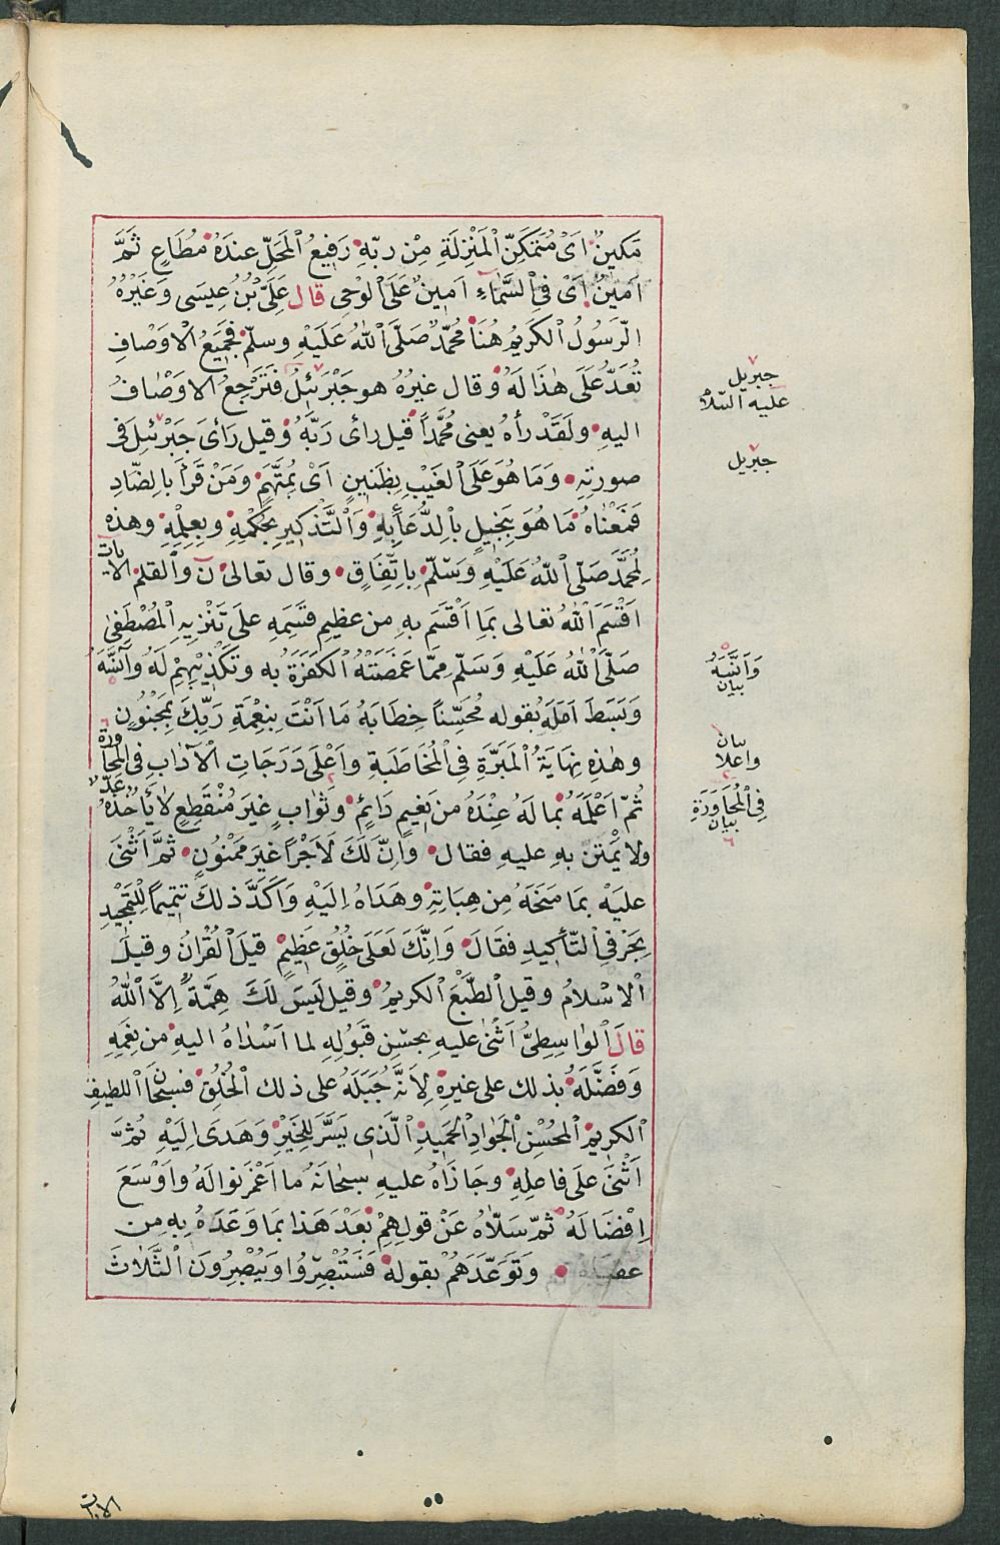 مَكينٌ اَىْ مُتَمَكِنّ الْمَنْزِلَةِ مِنْ ربّهِ رَفِيعُ الْمَحَلّ عِندَهُ مُطَاعٍ ثَمَّ
اَمينٌ اَىْ فِى السَّمٰاءِ اَمينٌ عَلَى الْوحىِ قال عَلَىّ بْنُ عِيسَى وَغَيْرُهُ
الرّسُولُ الكَرِيمُ هُنَا مُحمّدٌ صَلَّى اللهُ عَلَيْهِ وسلّم فَجَميَعُ الْاوَصْافِ
تُعَدّ عَلَى هٰذَا لَهُ وَقال غيرُهُ هو جَبْرَئيلُ فَتَرْجِعُ الاوَصْافُ
اليهِ ولَقَدْ رأهُ يعنى مُحَّمداً قيل راى رَبَّهُ وَقيل رَاىَ جَبْرَئيلَ فى
صورتهِ وَمَا هُوَ عَلَى الغَيْبِ بِظَنينٍ اَىْ بُمِتَّهَمٍ وَمَنْ قَرأَ بالضّادِ
فَمَعْنٰاهُ مَا هُوَ بِبَخيلٍ بالدُّعَآءِبهِ وَالتَّذكيرِ بِحُكْمِهِ وبِعِلْمِهِ وهذه
لِمُحمَّد صَلّى اللهُ عَلَيْهِ وَسَلّم بِاتِّفَاقٍ وقال تعالى نَ والقلم الايات
اَقْسَمَ اللهُ تعالى بَمِا اَقْسَم بهِ من عظيمِ قَسَمِهِ علَى تَنْزيهِ الْمصْطَفىٰ
صَلَّى اللهُ عَلَيْهِ وَسَلّم مِمّا غَمَصَتْهُ الكَفَرَةُ بهِ وتَكْذيبِهِمْ لَهُ وآنَسَهُ
وَبَسَطَ اَمَلَهُ بقوله مُحَسِّناً خِطَابَهُ مَا اَنْتَ بِنِعْمَةِ رَبِّكَ بِمَجْنُونٍ
وهٰذِهِ نِهَايَةُ الْمَبَرَّةِ فِى الْمُخَاطَبَةِ واَعْلَى دَرَجَاتِ الْآدٰابِ فِى المحاورة
ثُمّ اَعْلَمَهُ بَما لَهُ عِنْدَهُ من نَعيِمٍ دَائِمٍ وثَوٰابٍ غيَر مُنْقَطِعٍ لَا يَأْخُذُهُ عَدّ
ولا يَمْتَن بهِ عليهِ فقال وَانّ لَكَ لَاَجْراً غَيَر مَمْنُونٍ ثمَّ اَثْنىَ
عليَهْ بِمَا مَنَحَهُ مِن هِبَاتِهِ وهَدَاهُ اِليَهِ وَاَكَدَّ ذلكَ تتميماً لِلتّمجيْدِ
بحَرْفِى التَّأكيدِ فقَالَ وَاِنَّكَ لَعَلَى خُلُقٍ عَظيمٍ قيَل الْقُرٰانُ وقيَل
الْاسْلامُ وقيل الطّبْعُ الكريمُ وقيل لَيسَ لَكَ هِمّةٌ اِلَّا اللهُ
قالَ الْوٰاسِطِىُّ اَثْنىٰ عليهِ بحسْنِ قَبُولِهِ لما اَسْدٰاهُ اليهِ من نِعَمِهِ
وَفَضَّلَهُ بذلك على غيرهِ لِاَنَّهُ جُبَلَهُ على ذلك الْخُلُقِ فسبحانَ اللطيفِ
الكريمِ الْمحْسُنِ الْجوَادِ الْحَميدِ الّذى يَسَّرَ لِلْخَيْرِ وَهَدَى اِلَيْهِ ثُمَّ
اَثْنىَ عَلَى فاعلِهِ وجَازَاهُ عليهِ سبحٰانهُ ما اَغْمَر نوالَهُ واوَسَعَ
اِفْضَالَهُ ثمّ سَلّاهُ عَنْ قولِهِمْ بَعْدَ هَذا بمَا وَعَدَهُ بِهِ من
وَتَوَعّدَهُمْ بقوله فَسَتُبْصِرُ وَيُبْصِرُونَ الثّلٰاثَ
جبريل
عليه السّلام
جبريل
وَآنَسَهُ
بيان
بيان
واعلا
فِى الْمُحَاوَرَةِ
بيان
الايات